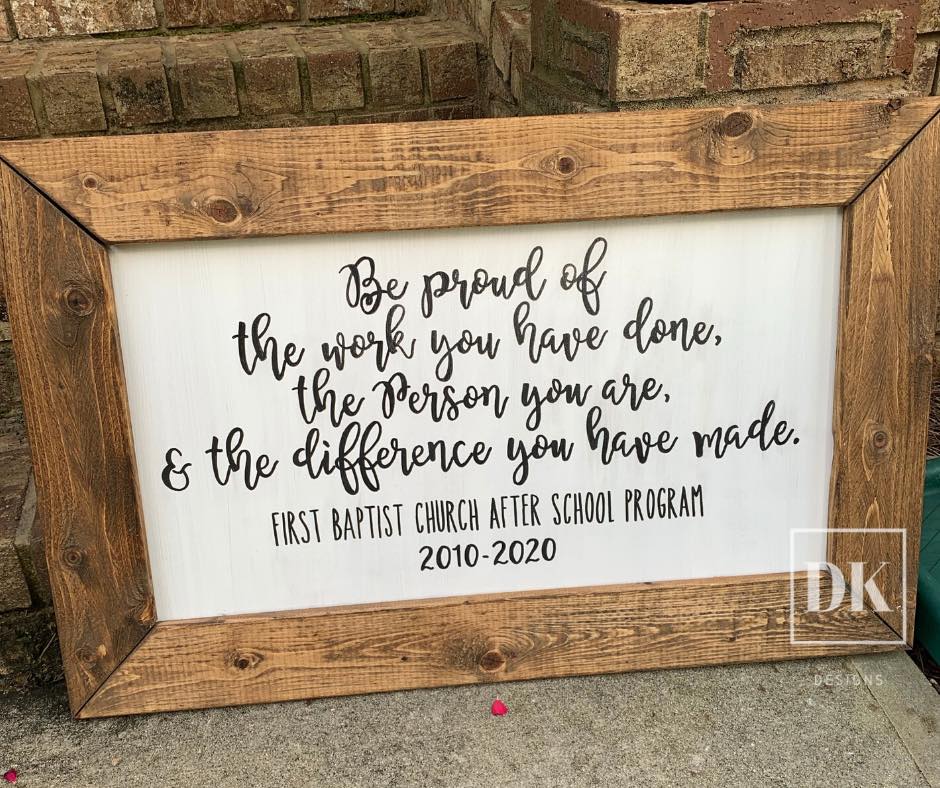 Be proud of
the work you have done,
the Person you are,
& the difference you have made.
FIRST BAPTIST CHURCH AFTER SCHOOL PROGRAM
2010-2020
DK
DESIGNS